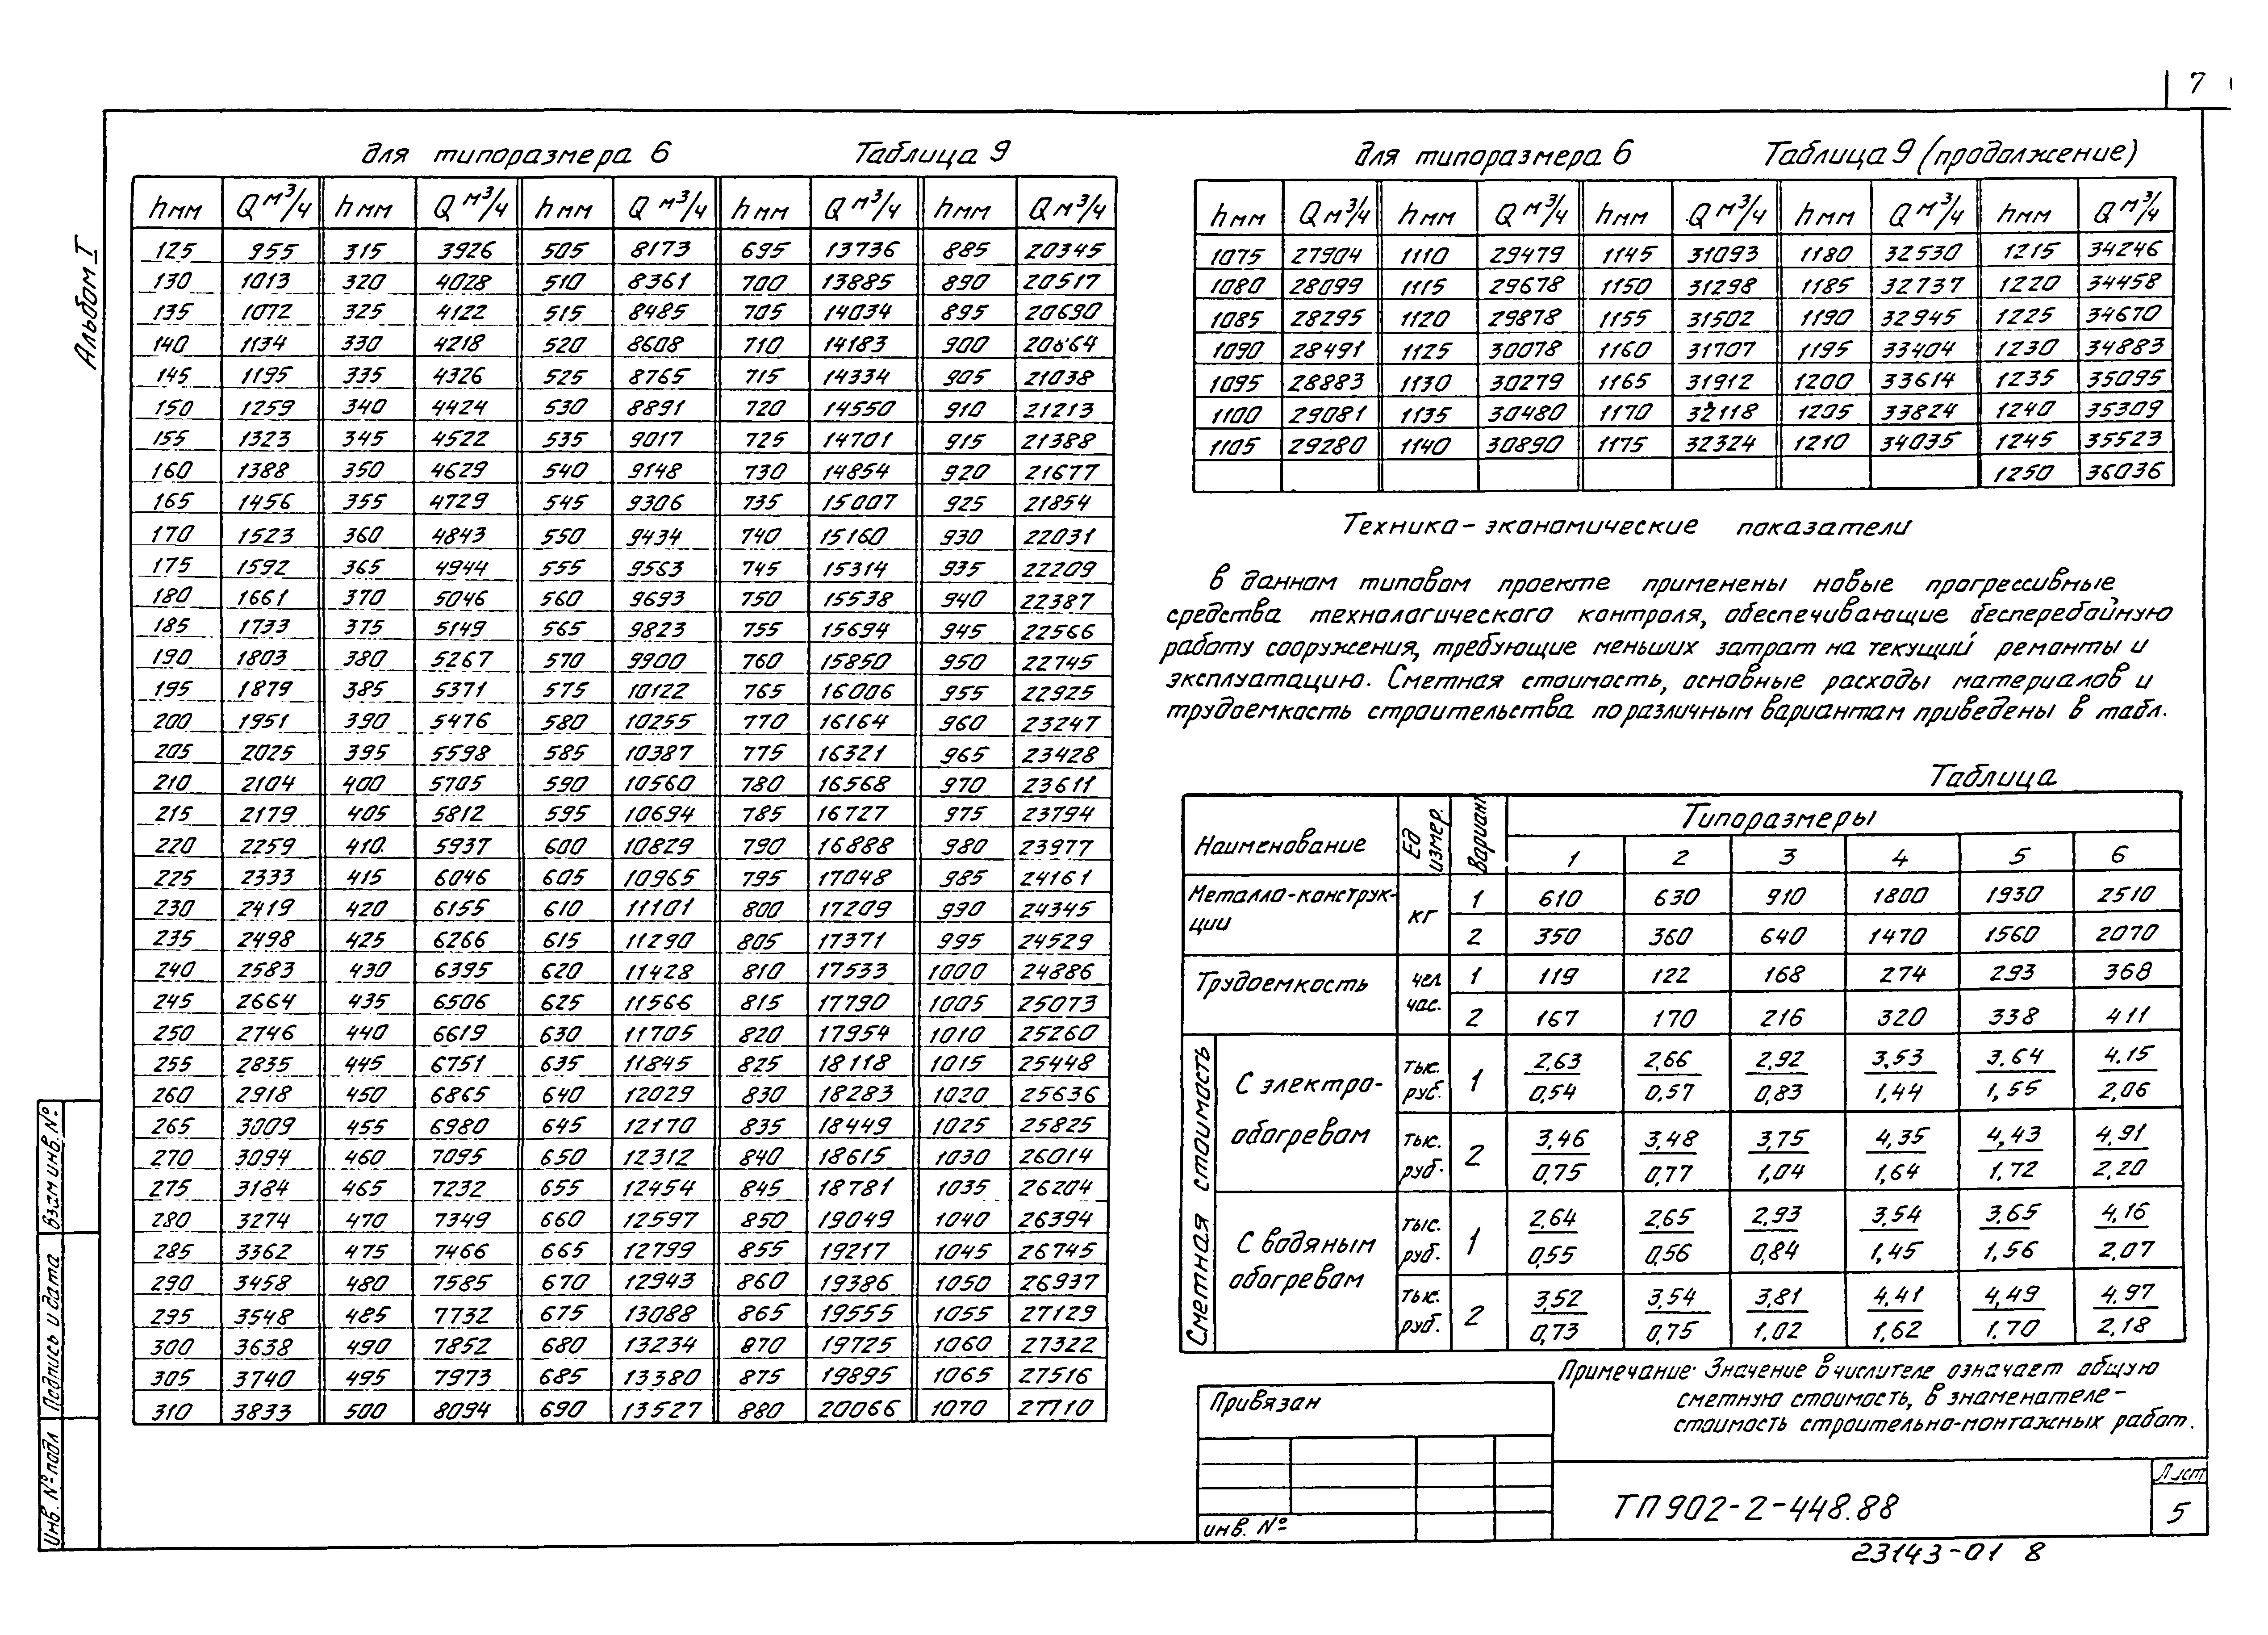 7
Альбом I
для типоразмера 6 Таблица 9
h мм Q м³/ч h мм Q м³/ч h мм Q м³/ч h мм Q м³/ч h мм Q м³/ч
125 955 315 3926 505 8173 695 13736 885 20345
130 1013 320 4028 510 8361 700 13885 890 20517
135 1072 325 4122 515 8485 705 14034 895 20690
140 1134 330 4218 520 8608 710 14183 900 20864
145 1195 335 4326 525 8765 715 14334 905 21038
150 1259 340 4424 530 8891 720 14550 910 21213
155 1323 345 4522 535 9017 725 14701 915 21388
160 1388 350 4629 540 9148 730 14854 920 21677
165 1456 355 4729 545 9306 735 15007 925 21854
170 1523 360 4843 550 9434 740 15160 930 22031
175 1592 365 4944 555 9563 745 15314 935 22209
180 1661 370 5046 560 9693 750 15538 940 22387
185 1733 375 5149 565 9823 755 15694 945 22566
190 1803 380 5267 570 9900 760 15850 950 22745
195 1879 385 5371 575 10122 765 16006 955 22925
200 1951 390 5476 580 10255 770 16164 960 23247
205 2025 395 5598 585 10387 775 16321 965 23428
210 2104 400 5705 590 10560 780 16568 970 23611
215 2179 405 5812 595 10694 785 16727 975 23794
220 2259 410 5937 600 10829 790 16888 980 23977
225 2333 415 6046 605 10965 795 17048 985 24161
230 2419 420 6155 610 11101 800 17209 990 24345
235 2498 425 6266 615 11290 805 17371 995 24529
240 2583 430 6395 620 11428 810 17533 1000 24886
245 2664 435 6506 625 11566 815 17790 1005 25073
250 2746 440 6619 630 11705 820 17954 1010 25260
255 2835 445 6751 635 11845 825 18118 1015 25448
260 2918 450 6865 640 12029 830 18283 1020 25636
265 3009 455 6980 645 12170 835 18449 1025 25825
270 3094 460 7095 650 12312 840 18615 1030 26014
275 3184 465 7232 655 12454 845 18781 1035 26204
280 3274 470 7349 660 12597 850 19049 1040 26394
285 3362 475 7466 665 12799 855 19217 1045 26745
290 3458 480 7585 670 12943 860 19386 1050 26937
295 3548 485 7732 675 13088 865 19555 1055 27129
300 3638 490 7852 680 13234 870 19725 1060 27322
305 3740 495 7973 685 13380 875 19895 1065 27516
310 3833 500 8094 690 13527 880 20066 1070 27710
для типоразмера 6 Таблица 9 (продолжение)
h мм Q м³/ч h мм Q м³/ч h мм Q м³/ч h мм Q м³/ч h мм Q м³/ч
1075 27904 1110 29479 1145 31093 1180 32530 1215 34246
1080 28099 1115 29678 1150 31298 1185 32737 1220 34458
1085 28295 1120 29878 1155 31502 1190 32945 1225 34670
1090 28491 1125 30078 1160 31707 1195 33404 1230 34883
1095 28883 1130 30279 1165 31912 1200 33614 1235 35095
1100 29081 1135 30480 1170 32118 1205 33824 1240 35309
1105 29280 1140 30890 1175 32324 1210 34035 1245 35523
1250 36036
Технико-экономические показатели
В данном типовом проекте применены новые прогрессивные
средства технологического контроля, обеспечивающие бесперебойную
работу сооружения, требующие меньших затрат на текущий ремонты и
эксплуатацию. Сметная стоимость, основные расходы материалов и
трудоемкость строительства по различным вариантам приведены в табл.
Таблица
Наименование Ед измер. Вариант Типоразмеры
1 2 3 4 5 6
Металло-конструк-
ции кг 1 610 630 910 1800 1930 2510
2 350 360 640 1470 1560 2070
Трудоемкость чел час. 1 119 122 168 274 293 368
2 167 170 216 320 338 411
Сметная стоимость
С электро-
обогревом
тыс. 2,63 2,66 2,92 3,53 3,64 4,15
руб. 1 0,54 0,57 0,83 1,44 1,55 2,06
тыс. 3,46 3,48 3,75 4,35 4,43 4,91
руб. 2 0,75 0,77 1,04 1,64 1.72 2,20
С водяным
обогревом
тыс. 2,64 2,65 2,93 3,54 3,65 4,16
руб. 1 0,55 0,56 0,84 1,45 1,56 2,07
тыс. 3,52 3,54 3,81 4,41 4,49 4,97
руб. 2 0,73 0,75 1,02 1,62 1.70 2,18
Примечание: Значение в числителе означает общую
сметную стоимость, в знаменателе-
стоимость строительно-монтажных работ.
Привязан
инв. №
ТП 902-2-448.88
Лист
5
23143-01 8
Взам инв. №
Подпись и дата
Инв. № подл